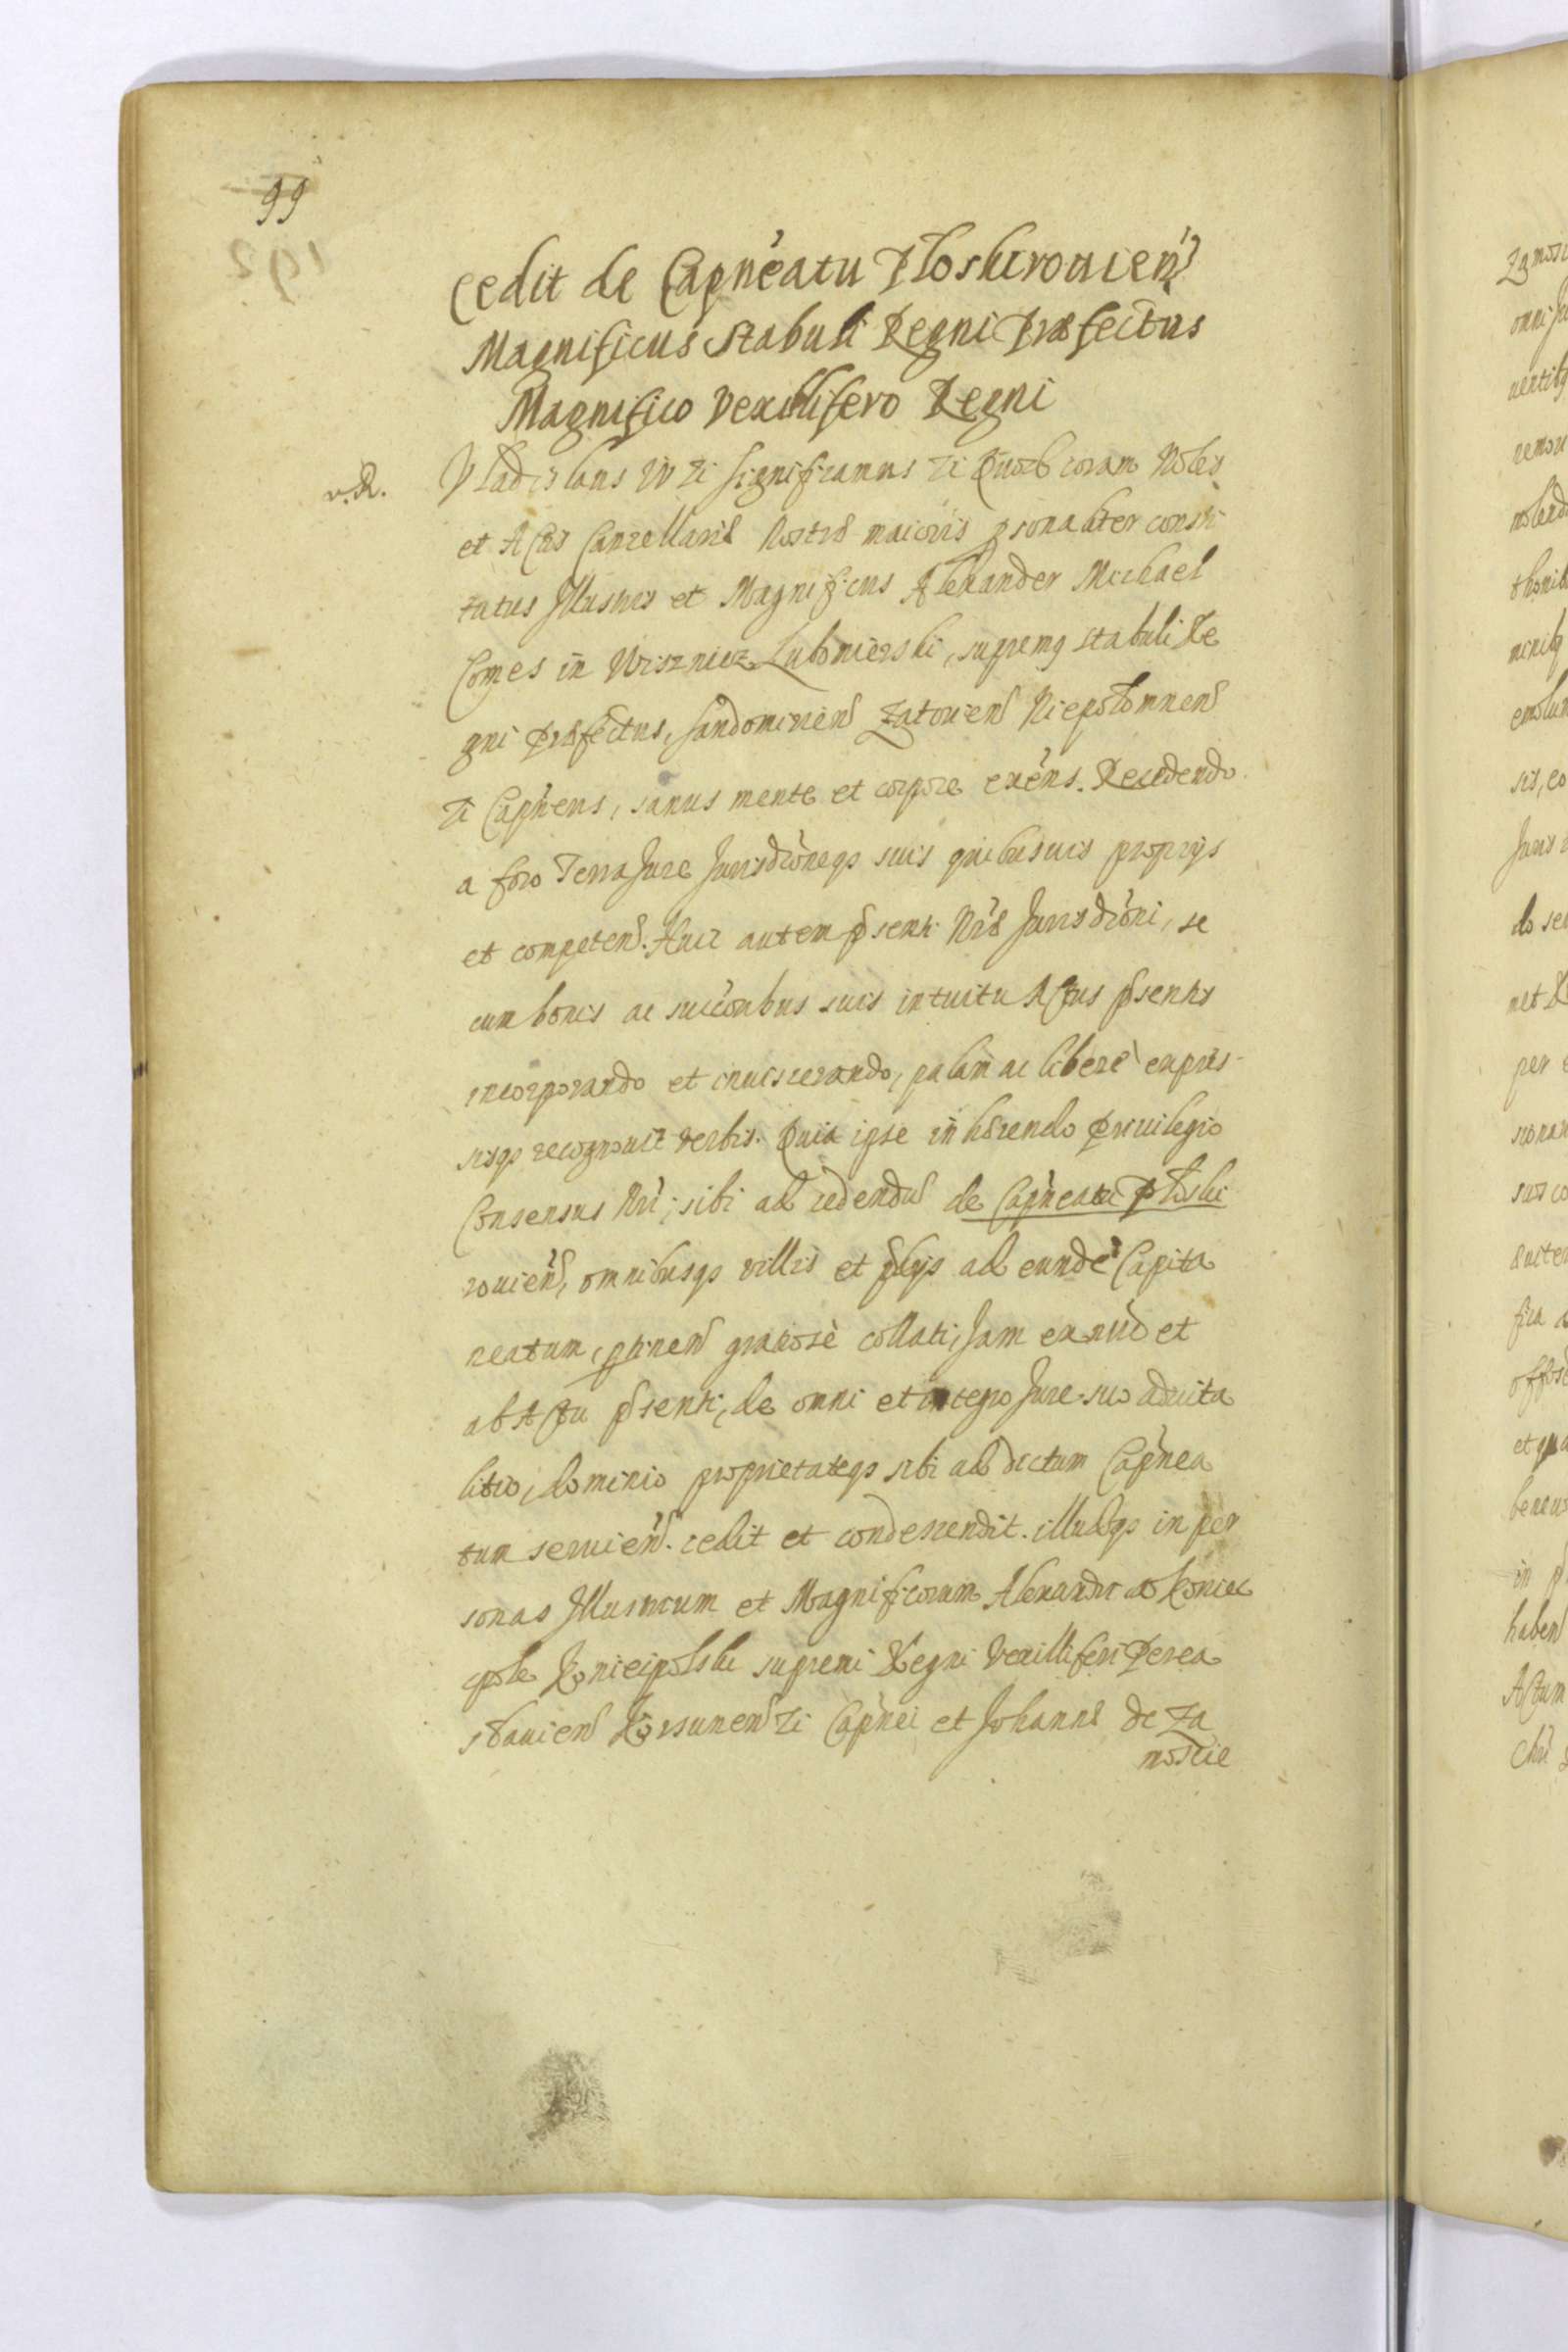 99
192
Cedit de Capneatu Ploskirouien
Magnificus Stabuli Regni Præfectus
Magnifico Vexillifero Regni
v. R.
Vladislaus IV Zi significamus Zi Quod coram Nobis
et Actis Cancellariæ Nostræ maioris psonaliter consti
tutus Illustris et Magnificus Alexander Michael
Comes in Wisznicz Lubomierski, supremq stabuli Re
gni Præfectus, Sandomirien Zatorien Niepolomnen
Zi Capneus, sanus mente et corpore exens. Recedendo
a foro Terra Jure Jurisdioneqs suis quibusuis proprijs
et competen. Huic autem psenti Nræ Jurisdioni, se
cum bonis ac succoribus suis intuitu Actus psentis
incorporando et inuiscerando, palam ac liberè expres-
sisqs recognouit verbis. Quia ipse inhærendo Priuilegio
Consensus Nri, sibi ad cedendu de Capneatu Ploski
rouien, omnibusqs villis et pdijs ad eunde Capita
neatum, ptinen gratiosè collati, Jam ex nuc et
ab Actu psenti, de omni et integro Jure suo aduita
litio, dominio proprietateqs sibi ad dictum Capnea
tum seruien. cedit et condescendit. illudqs in per
sonas Illustrium et Magnificorum Alexandri de Koniec
pole Koniecpolski supremi Regni Vexilliferi Perea
slauien Korsunen Zi Capnei et Johannis de Za
moscie